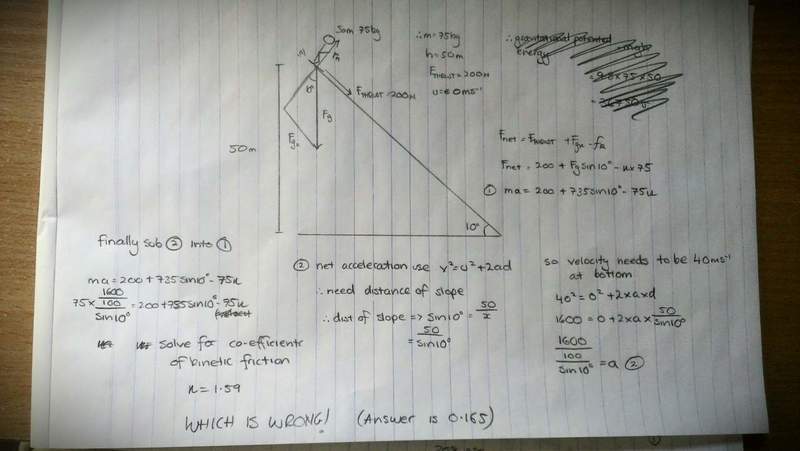 Sam 75kg
∴ m=75kg
h=50m
F_THRUST=200N
u=0ms⁻¹
∴ gravitational potential energy = mgh
= 9.8×75×50
N
F_R
10°
F_THRUST=200N
F_g
F_gx
50m
10°
F_net = F_THRUST + F_gx - f_R
F_net = 200 + F_g sin10° - u×75
① ma = 200 + 735sin10° - 75u
finally sub ② into ①
ma = 200 + 735sin10° - 75u
75 × 1600/(100/sin10°) = 200 + 735sin10° - 75u
solve for co-efficients
of kinetic friction
u = 1.59
② net acceleration use v²=u²+2ad
∴ need distance of slope
∴ dist of slope => sin10° = 50/x
= 50/sin10°
so velocity needs to be 40ms⁻¹
at bottom
40² = 0² + 2×a×d
1600 = 0 + 2×a× 50/sin10°
1600/(100/sin10°) = a ②
WHICH IS WRONG! (Answer is 0.165)